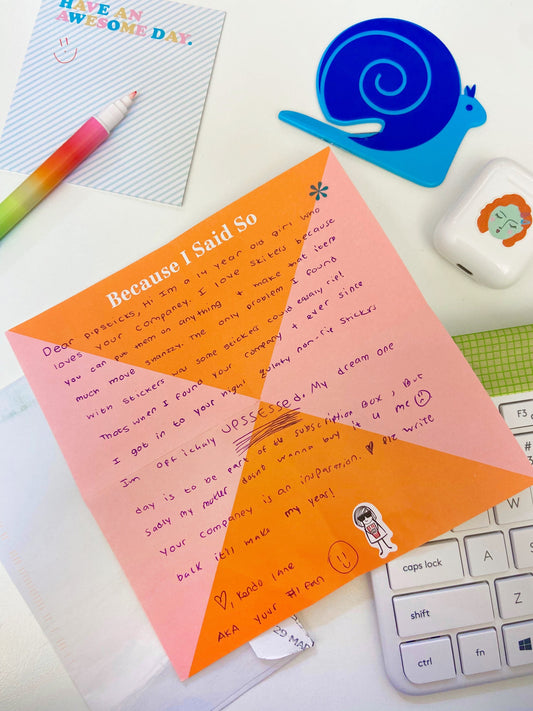 HAVE AN
AWESOME DAY.
Because I Said So
Dear pipsticks, Hi Im a 14 year old girl who
loves your companey. I love skiters because
you can put them on anything + make that item
much move snazzy. The only problem I found
with stickers was some stickers could easaly rip!
Thats when I found your company + ever since
I got in to your high qulaty non-rie stickers
Im officialy UPSSESSed. My dream one
day is to be part of the subscription Box, But
sadly my mother doesnt wanna buy it 4 me
your companey is an inspasation. ♥ plz write
back it'll make my year!
♡, Kendo Lane
AKA your #1 fan
29 MAR
caps lock
A
shift
Z
ctrl
fn
F3
#
3